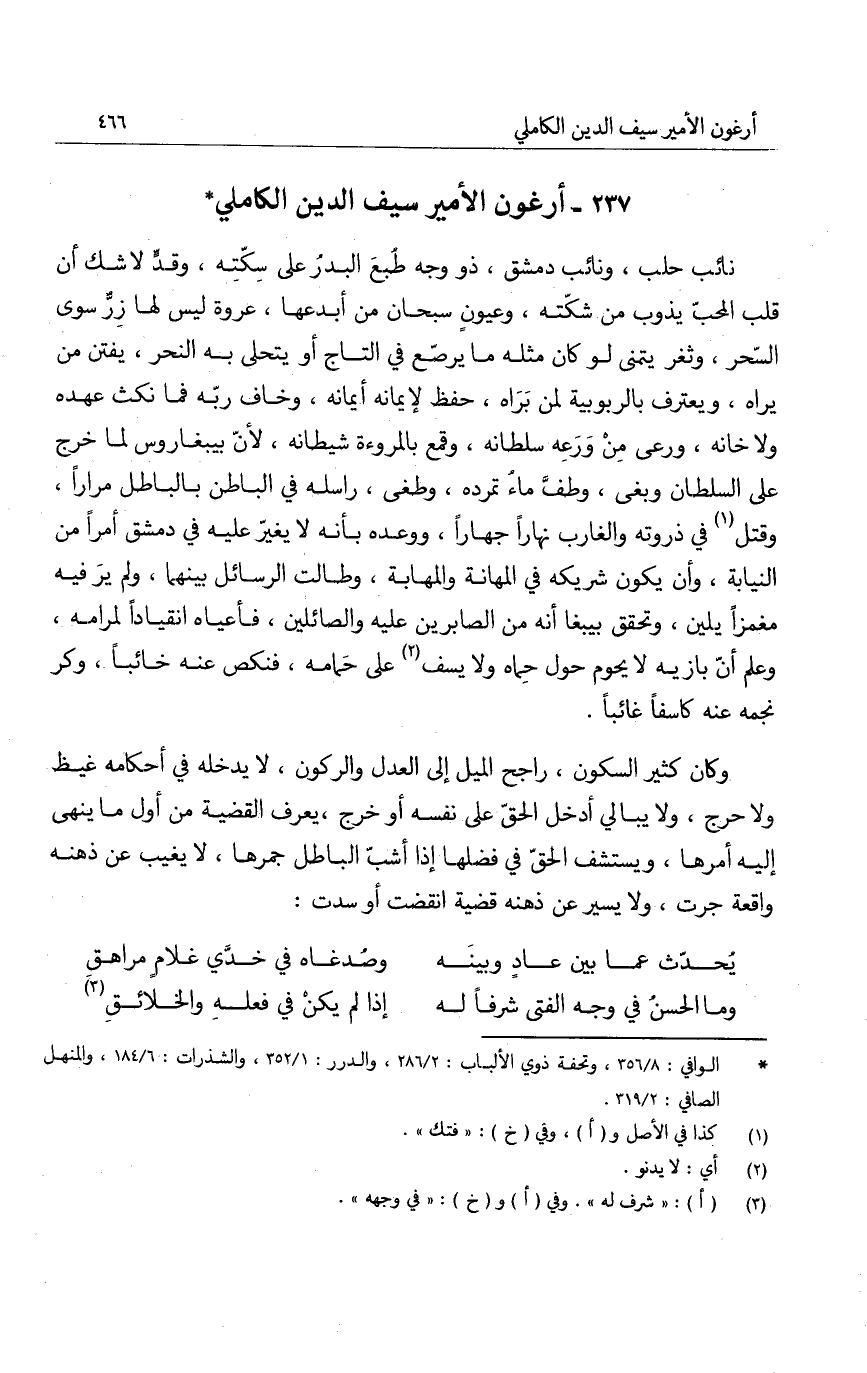 أرغون الأمير سيف الدين الكاملي ٤٦٦
٢٣٧ ـ أرغون الأمير سيف الدين الكاملي*
نائب حلب ، ونائب دمشق ، ذو وجه طُبعَ البدرُ على سِكّتِه ، وقدٍّ لا شك أن
قلب المحبّ يذوب من شكّته ، وعيونٍ سبحان من أبدعها ، عروة ليس لها زِرٌّ سوى
السّحر ، وثغر يتمنى لو كان مثله ما يرصّع في التاج أو يتحلى به النحر ، يفتن من
يراه ، ويعترف بالربوبية لمن بَرَاه ، حفظ لإيمانه أيمانه ، وخاف ربّه فما نكث عهده
ولا خانه ، ورعى مِنْ وَرَعِه سلطانه ، وقمع بالمروءة شيطانه ، لأنّ بيبغاروس لما خرج
على السلطان وبغى ، وطفَّ ماءُ تمرده ، وطغى ، راسله في الباطن بالباطل مراراً ،
وقتل(١) في ذروته والغارب نهاراً جهاراً ، ووعده بأنه لا يغيّر عليه في دمشق أمراً من
النيابة ، وأن يكون شريكه في المهانة والمهابة ، وطالت الرسائل بينها ، ولم يرَ فيه
مغمزاً يلين ، وتحقق بيبغا أنه من الصابرين عليه والصائلين ، فأعياه انقياداً لمرامه ،
وعلم أنّ بازيه لا يحوم حول حِماه ولا يسف(٢) على حَمامه ، فنكص عنه خائباً ، وكر
نجمه عنه كاسفاً غائباً .
وكان كثير السكون ، راجح الميل إلى العدل والركون ، لا يدخله في أحكامه غيظ
ولا حرج ، ولا يبالي أدخل الحقّ على نفسه أو خرج ،يعرف القضية من أول ما ينهى
إليه أمرها ، ويستشف الحقّ في فضلها إذا أشبّ الباطل جمرها ، لا يغيب عن ذهنه
واقعة جرت ، ولا يسير عن ذهنه قضية انقضت أو سدت :
يُحدّث عما بين عادٍ وبينَه وصُدغاه في خدَّي غلامٍ مراهقِ
وما الحسنُ في وجه الفتى شرفاً له إذا لم يكنْ في فعلهِ والخلائقِ(٣)
* الوافي : ٣٥٦/٨ ، وتحفة ذوي الألباب : ٢٨٦/٢ ، والدرر : ٣٥٢/١ ، والشذرات : ١٨٤/٦ ، والمنهل
الصافي : ٣١٩/٢ .
(١) كذا في الأصل و( أ ) ، وفي ( خ ) : « فتك » .
(٢) أي : لا يدنو .
(٣) ( أ ) : « شرف له » . وفي ( أ ) و ( خ ) : « في وجهه » .